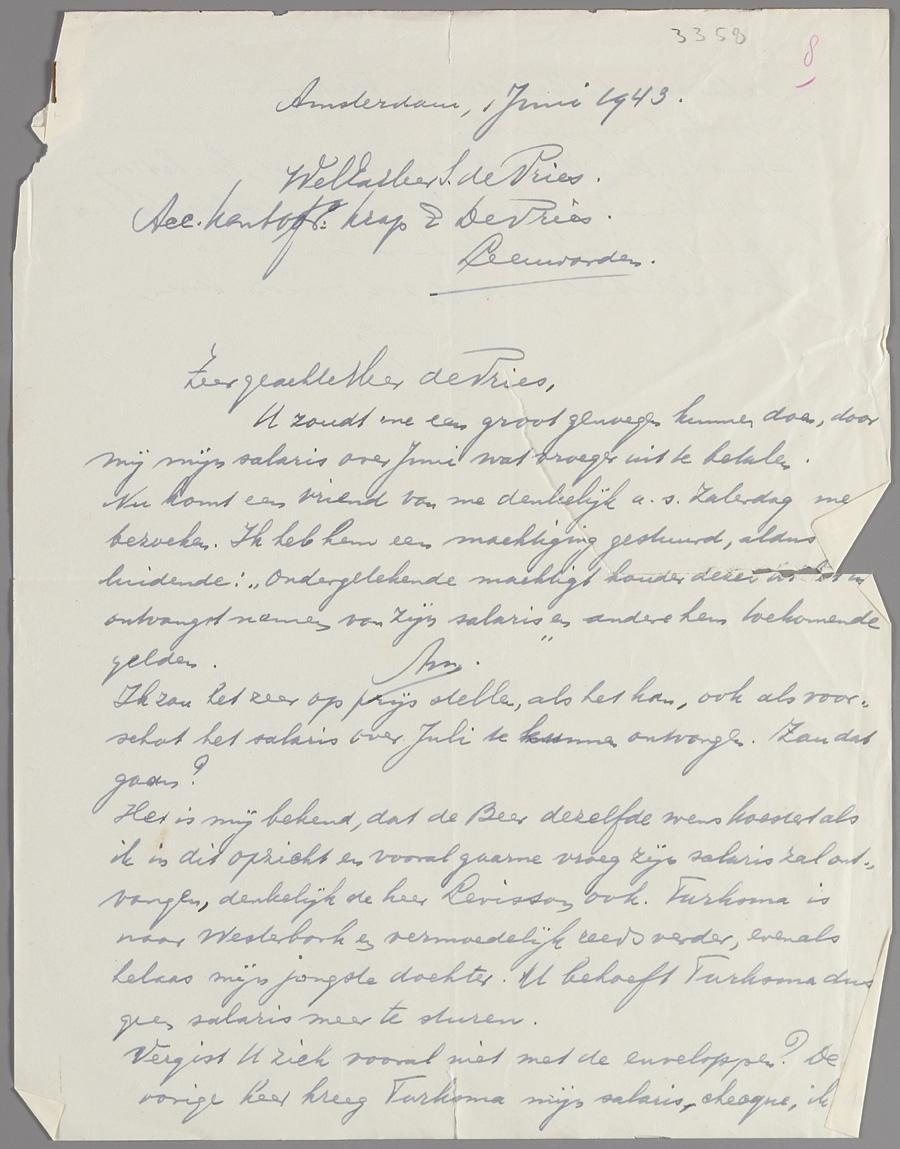 3358
8
Amsterdam, 1 Juni 1943.
WelEd. Heer S. de Vries.
Acc. kantoor: Krap & De Vries.
Leeuwarden.
Zeer geachte Heer de Vries,
U zoudt me een groot genoegen kunnen doen, door
mij mijn salaris over Juni wat vroeger uit te betalen.
Nu komt een vriend van me denkelijk a. s. Zaterdag me
bezoeken. Ik heb hem een machtiging gestuurd, aldus
luidende: „Ondergetekende machtigt houder dezer
ontvangst nemen van zijn salaris en andere hem toekomende
gelden."
Ik zou het zeer op prijs stellen, als het kan, ook als voor-
schot het salaris over Juli te kunnen ontvangen. Zou dat
gaan?
Het is mij bekend, dat de Beer dezelfde wens koestert als
ik in dit opzicht en vooral gaarne vroeg zijn salaris zal ont-
vangen, denkelijk de heer Levisson ook. Turksma is
naar Westerbork en vermoedelijk reeds verder, evenals
helaas mijn jongste dochter. U behoeft Turksma dus
geen salaris meer te sturen.
Vergist U zich vooral niet met de enveloppen? De
vorige keer kreeg Turksma mijn salaris, cheque, ik